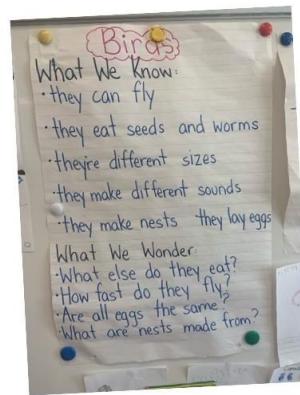 Birds
What We Know:
·they can fly
·they eat seeds and worms
·they're different sizes
·they make different sounds
·they make nests they lay eggs
What We Wonder:
·What else do they eat?
·How fast do they fly?
·Are all eggs the same?
·What are nests made from?